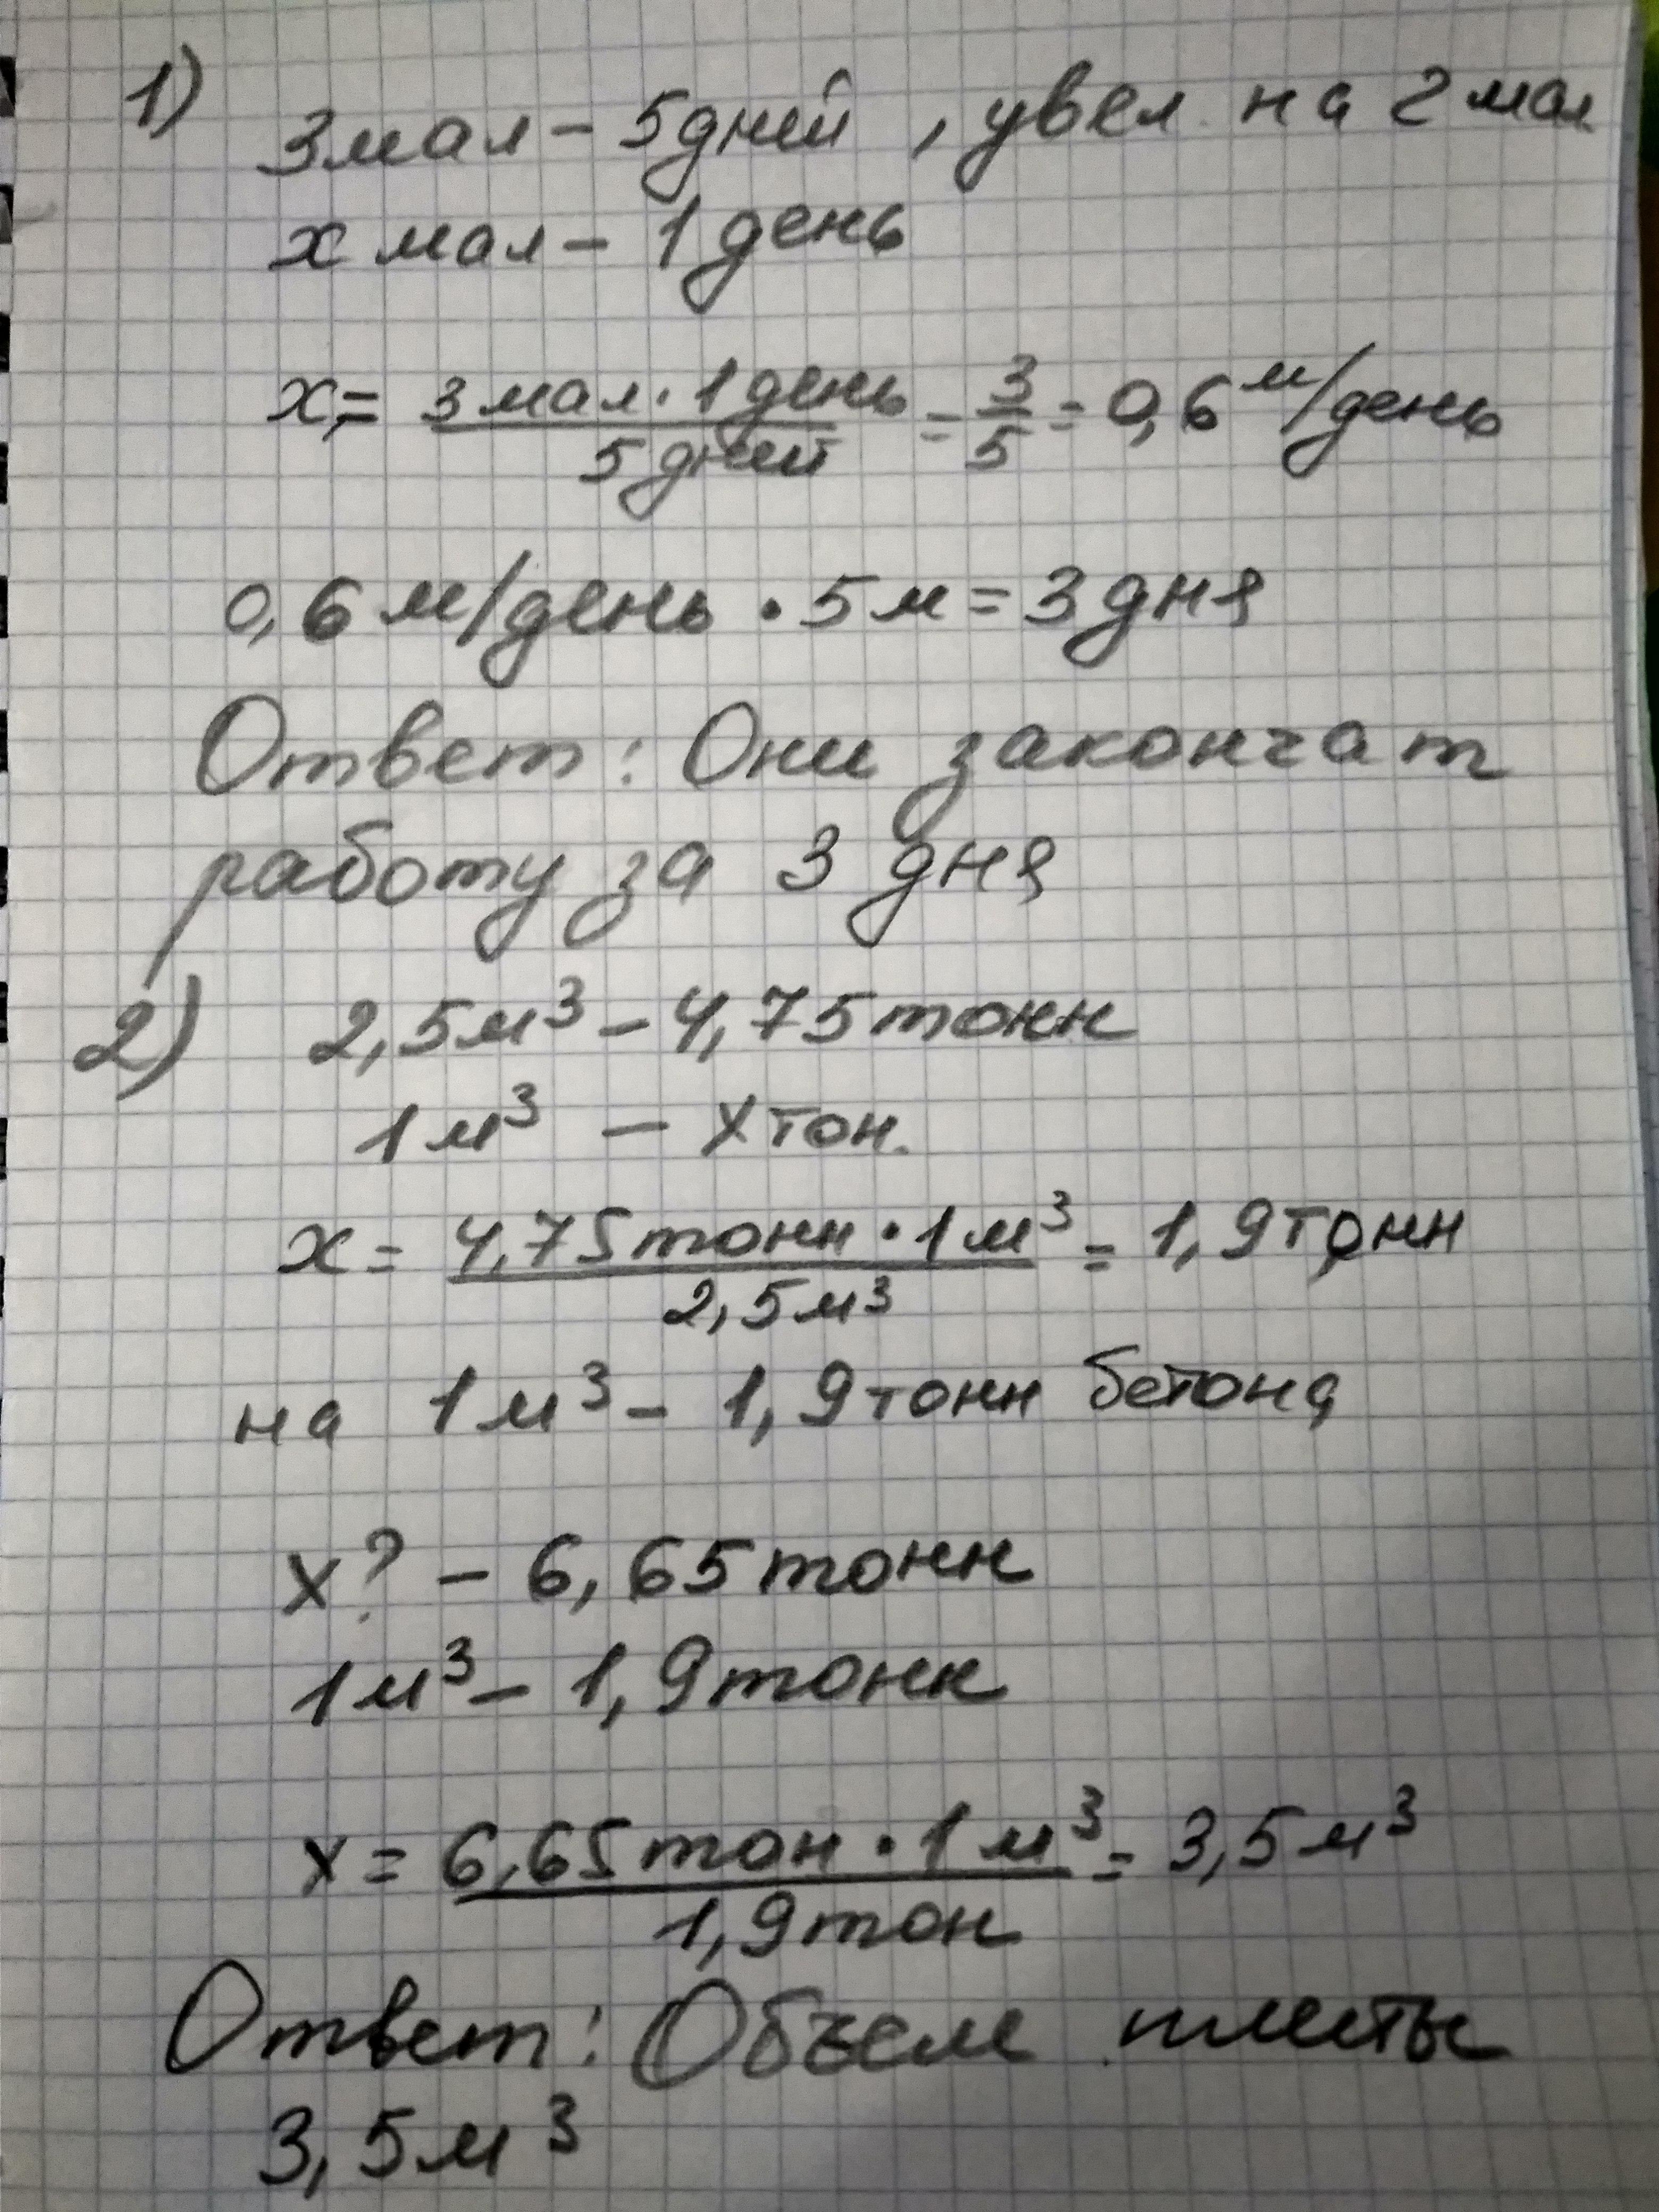 1)
3 мал - 5 дней, увел. на 2 мал
x мал - 1 день
x = 3 мал · 1 день / 5 дней = 3/5 = 0,6 м/день
0,6 м/день · 5 м = 3 дня
Ответ: Они закончат
работу за 3 дня
2) 2,5 м³ - 4,75 тонн
1 м³ - x тон.
x = 4,75 тонн · 1 м³ / 2,5 м³ = 1,9 тонн
на 1 м³ - 1,9 тонн бетона
x? - 6,65 тонн
1 м³ - 1,9 тонн
x = 6,65 тон · 1 м³ / 1,9 тон = 3,5 м³
Ответ: Объем плиты
3,5 м³